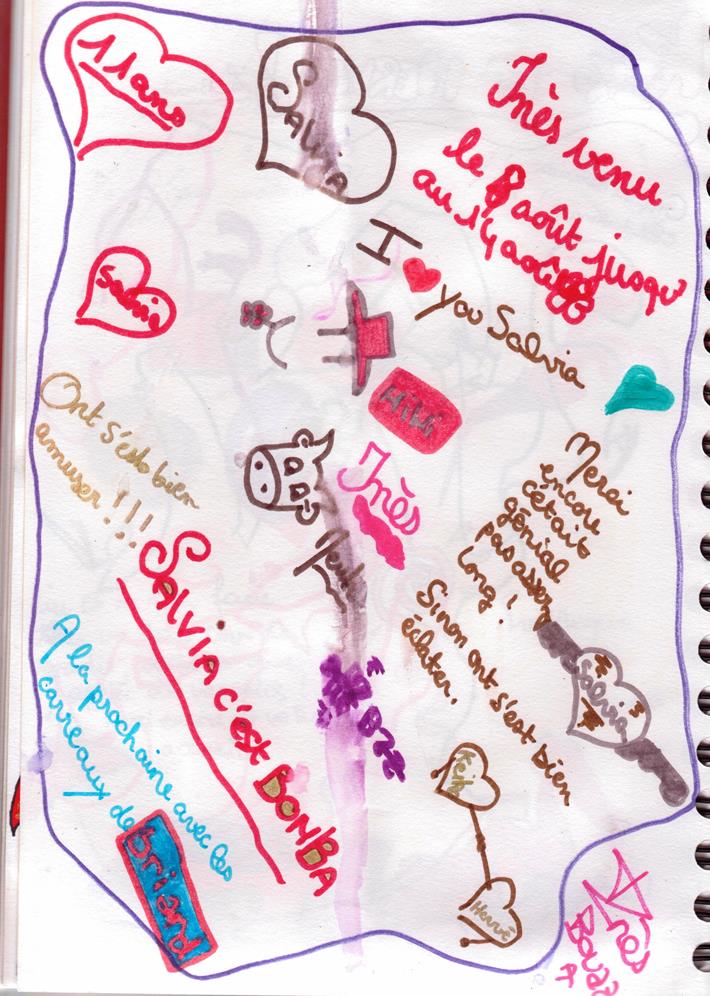 11 ans
Salvia
Inès venu
le 8 août jusqu'
au 14 août
I you Salvia
Salvia
HiHi
Ont s'est bien
amuser !!!
Inès
Merci
encore
c'était
génial
pas assez
long !
SALVIA c'est BOMBA
Sinon ont s'est bien
éclater.
Salvia
A la prochaine avec les
carreaux de
briand
Hervé
Inès